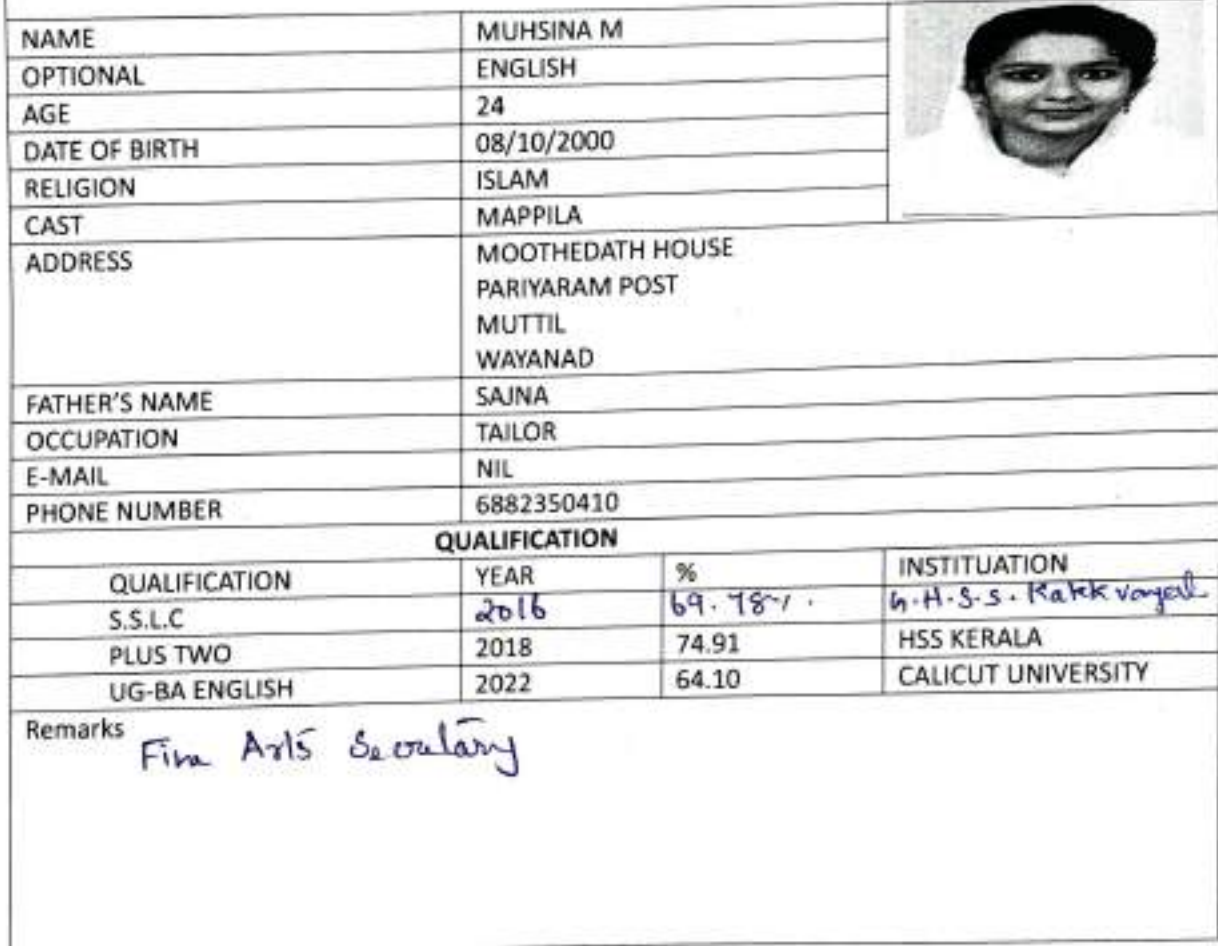 NAME MUHSINA M
OPTIONAL ENGLISH
AGE 24
DATE OF BIRTH 08/10/2000
RELIGION ISLAM
CAST MAPPILA
ADDRESS MOOTHEDATH HOUSE
PARIYARAM POST
MUTTIL
WAYANAD
FATHER'S NAME SAJNA
OCCUPATION TAILOR
E-MAIL NIL
PHONE NUMBER 6882350410
QUALIFICATION
QUALIFICATION YEAR % INSTITUATION
S.S.L.C 2016 69.78%. G.H.S.S.
PLUS TWO 2018 74.91 HSS KERALA
UG-BA ENGLISH 2022 64.10 CALICUT UNIVERSITY
Remarks
Fine Arts Secretary